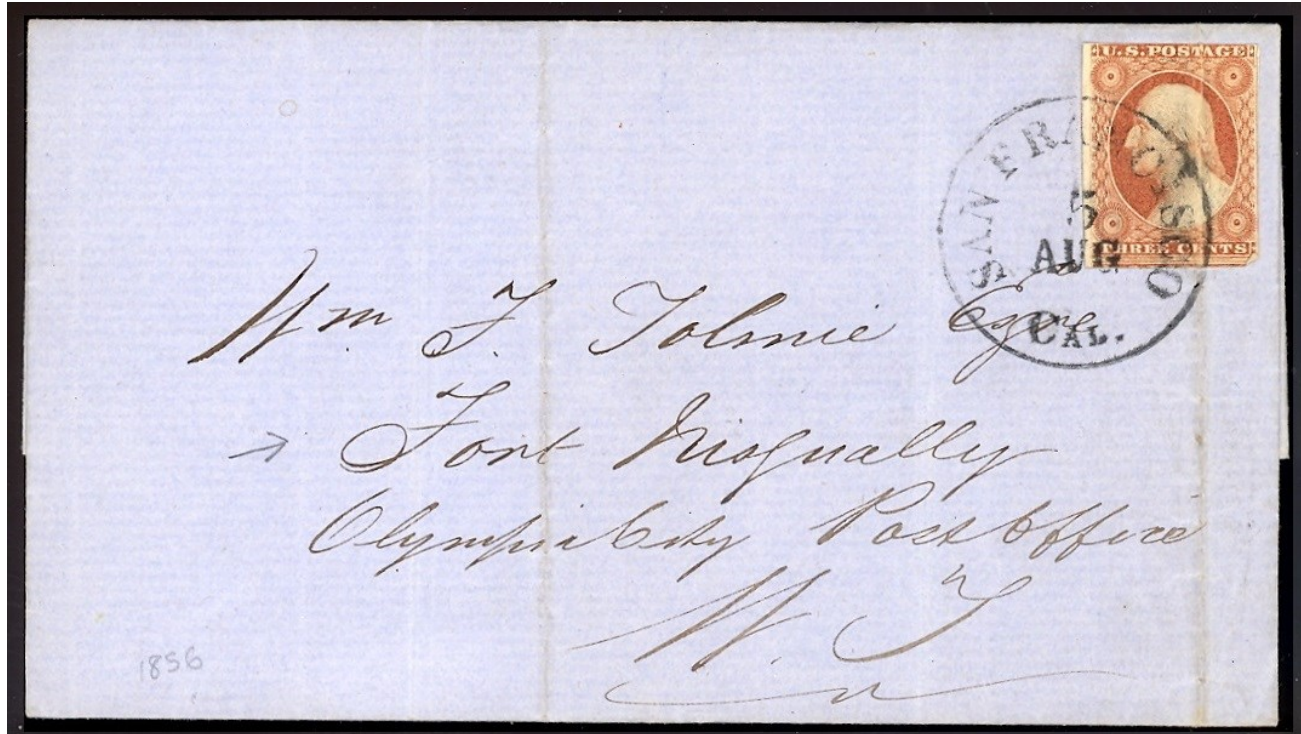 U.S. POSTAGE
THREE CENTS
SAN FRANCISCO
5
AUG
CAL.
Wm. F. Tolmie Esqre
Fort Nisqually
Olympia City Post Office
W. T
1856